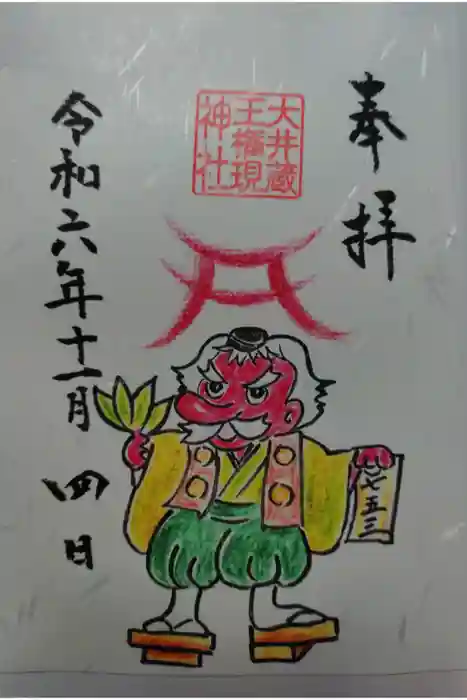 奉拝
大井蔵
王権現
神社
七五三
令和六年十一月四日